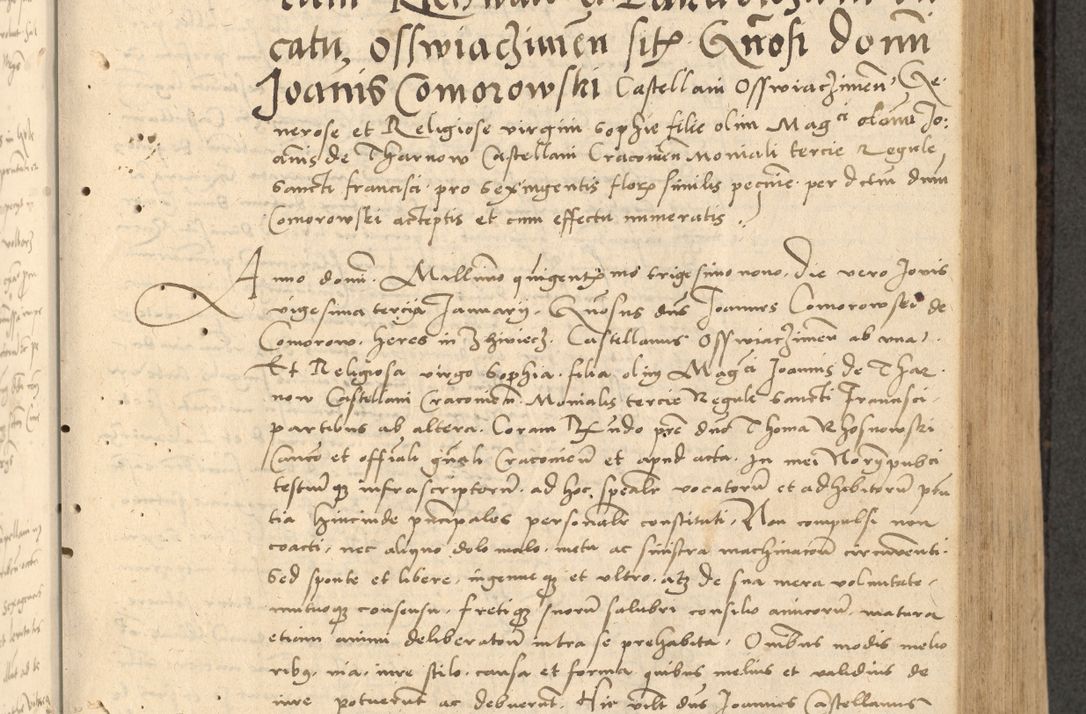 catu, Osswiaczimen̄ sit̄ Gn̄osi domi
Joanis Comorowski Castellani Osswiaczimen̄, Ge
nerose et Religiose virgini Sophie filie olim Magci olani Jo:
anis de Tharnow Castellani Cracovien̄ Moniali tercie Regule
Sancti francisci pro Sexingentis flor similis pecnie per dctm dnm
Comorowski acceptis et cum effectu numeratis
Anno domi Millimo quigentmo trigesimo nono, die vero Jovis
vigesima tercia Januarij, Gn̄osus dn̄s Joannes Comorowski de
Comorow, heres in Zhiwiecz, Castellanus Osswiaczimen̄ ab una,
Et Religiosa virgo Sophia filia olim Magci Joannis de Thar
now Castellani Cracovien̄ Monialis tercie Regule Sancti Francisci
partibus ab altera. Coram Rndo pre dno Thoma Rhosnowski
Canco et offiali gn̄ali Cracovien̄ et apud acta, In mei Norij publici
testiumq infrascriptorum, ad hoc spealr vocatorum et adhibitorum pn
tia hincinde pncipales personalr constituti, Non compulsi non
coacti, nec aliquo dolo malo, metu ac sinistra machinacoē circumventi
Sed sponte et libere, ingenueq et ultro, atq de sua mera voluntate,
mutuoq consensu, fretiq suorum salubri consilio amicorum, matura
etiam animi deliberatoē intra se prehabita, Omībus modis melio
ribq, via, iure stilo, causa et forma quibus melius et validius de
iure potuerunt ac debuerunt, Hic vilt dns Joannes Castellanus